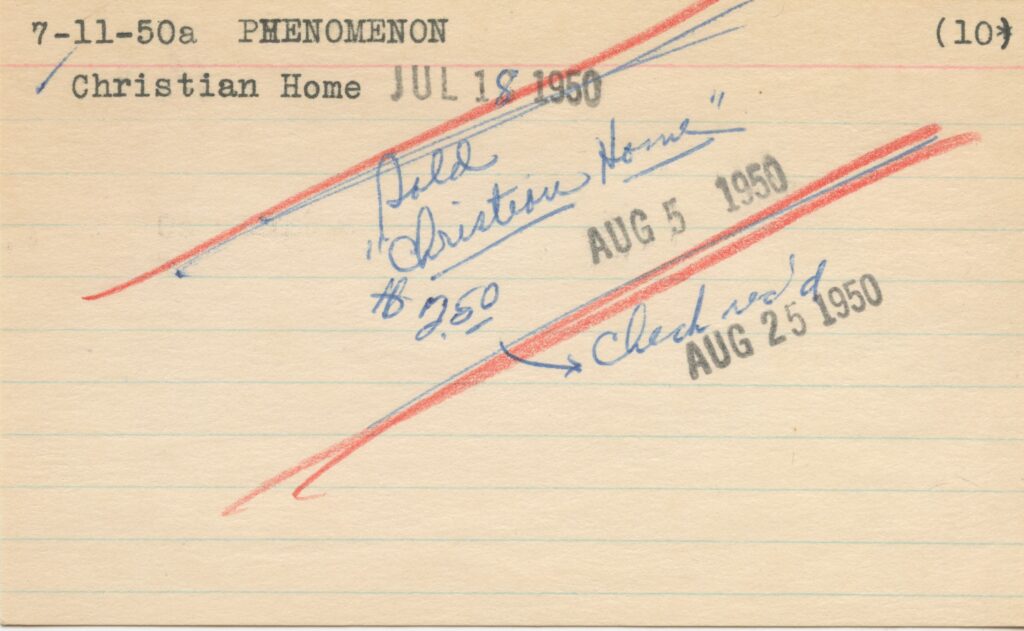 7-11-50a PHENOMENON (10)
Christian Home JUL 18 1950
Sold
"Christian Home"
AUG 5 1950
$2.50
Check rec'd
AUG 25 1950